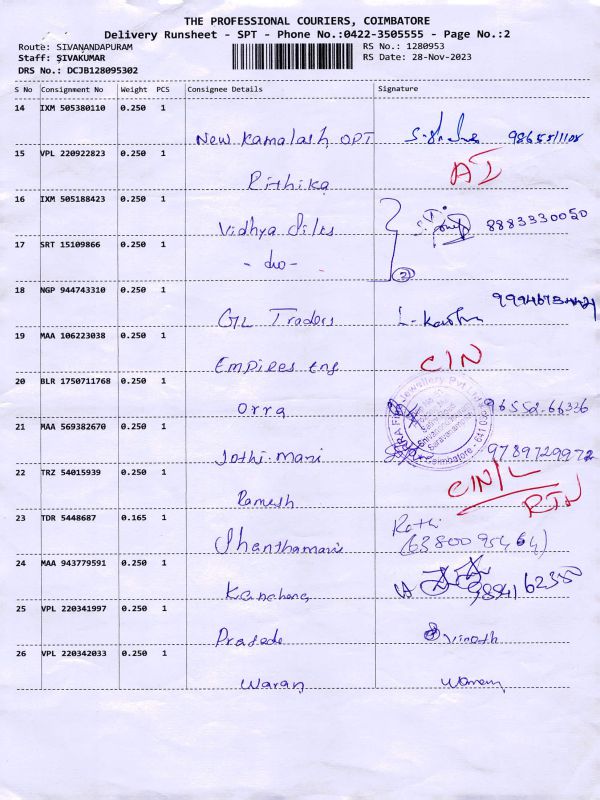 THE PROFESSIONAL COURIERS, COIMBATORE
Delivery Runsheet - SPT - Phone No.:0422-3505555 - Page No.:2
Route: SIVANANDAPURAM RS No.: 1280953
Staff: SIVAKUMAR RS Date: 28-Nov-2023
DRS No.: DCJB128095302
S No Consignment No Weight PCS Consignee Details Signature
14 IXM 505380110 0.250 1
New Kamalash OPT
15 VPL 220922823 0.250 1
Rithika
16 IXM 505188423 0.250 1
Vidhya 8883330050
17 SRT 15109866 0.250 1
- do - 2
18 NGP 944743310 0.250 1
GTL Traders
19 MAA 106223038 0.250 1
Empires Eng CIN
20 BLR 1750711768 0.250 1
Orra 96552-66336
21 MAA 569382670 0.250 1
Jothi-Mani 9789729972
22 TRZ 54015939 0.250 1
Ramesh CIN/L
RTN
23 TDR 5448687 0.165 1
Shanthamani
24 MAA 943779591 0.250 1
25 VPL 220341997 0.250 1
Vinoth
26 VPL 220342033 0.250 1
Waran